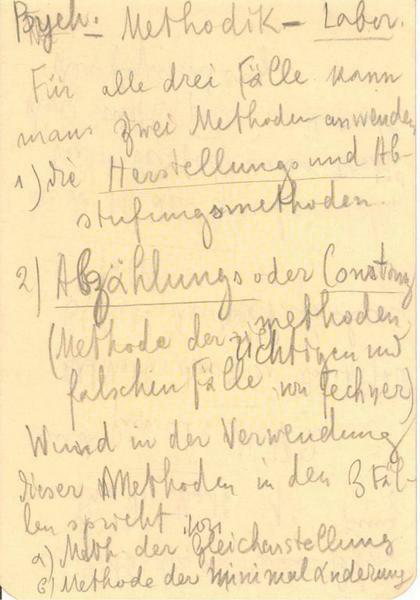 Psych. Methodik – Labor.
Für alle drei Fälle kann
mans zwei Methoden anwenden
1) die Herstellungs und Ab-
stufungsmethoden.
2) Abzählungs oder Constanz
methoden,
(Methode der richtigen und
falschen Fälle von Fechner)
Wund in der Verwendung
dieser Methoden in den 3 Fäl-
len spricht von
a) Meth. der Gleicheinstellung
b) Methode der Minimaländerung